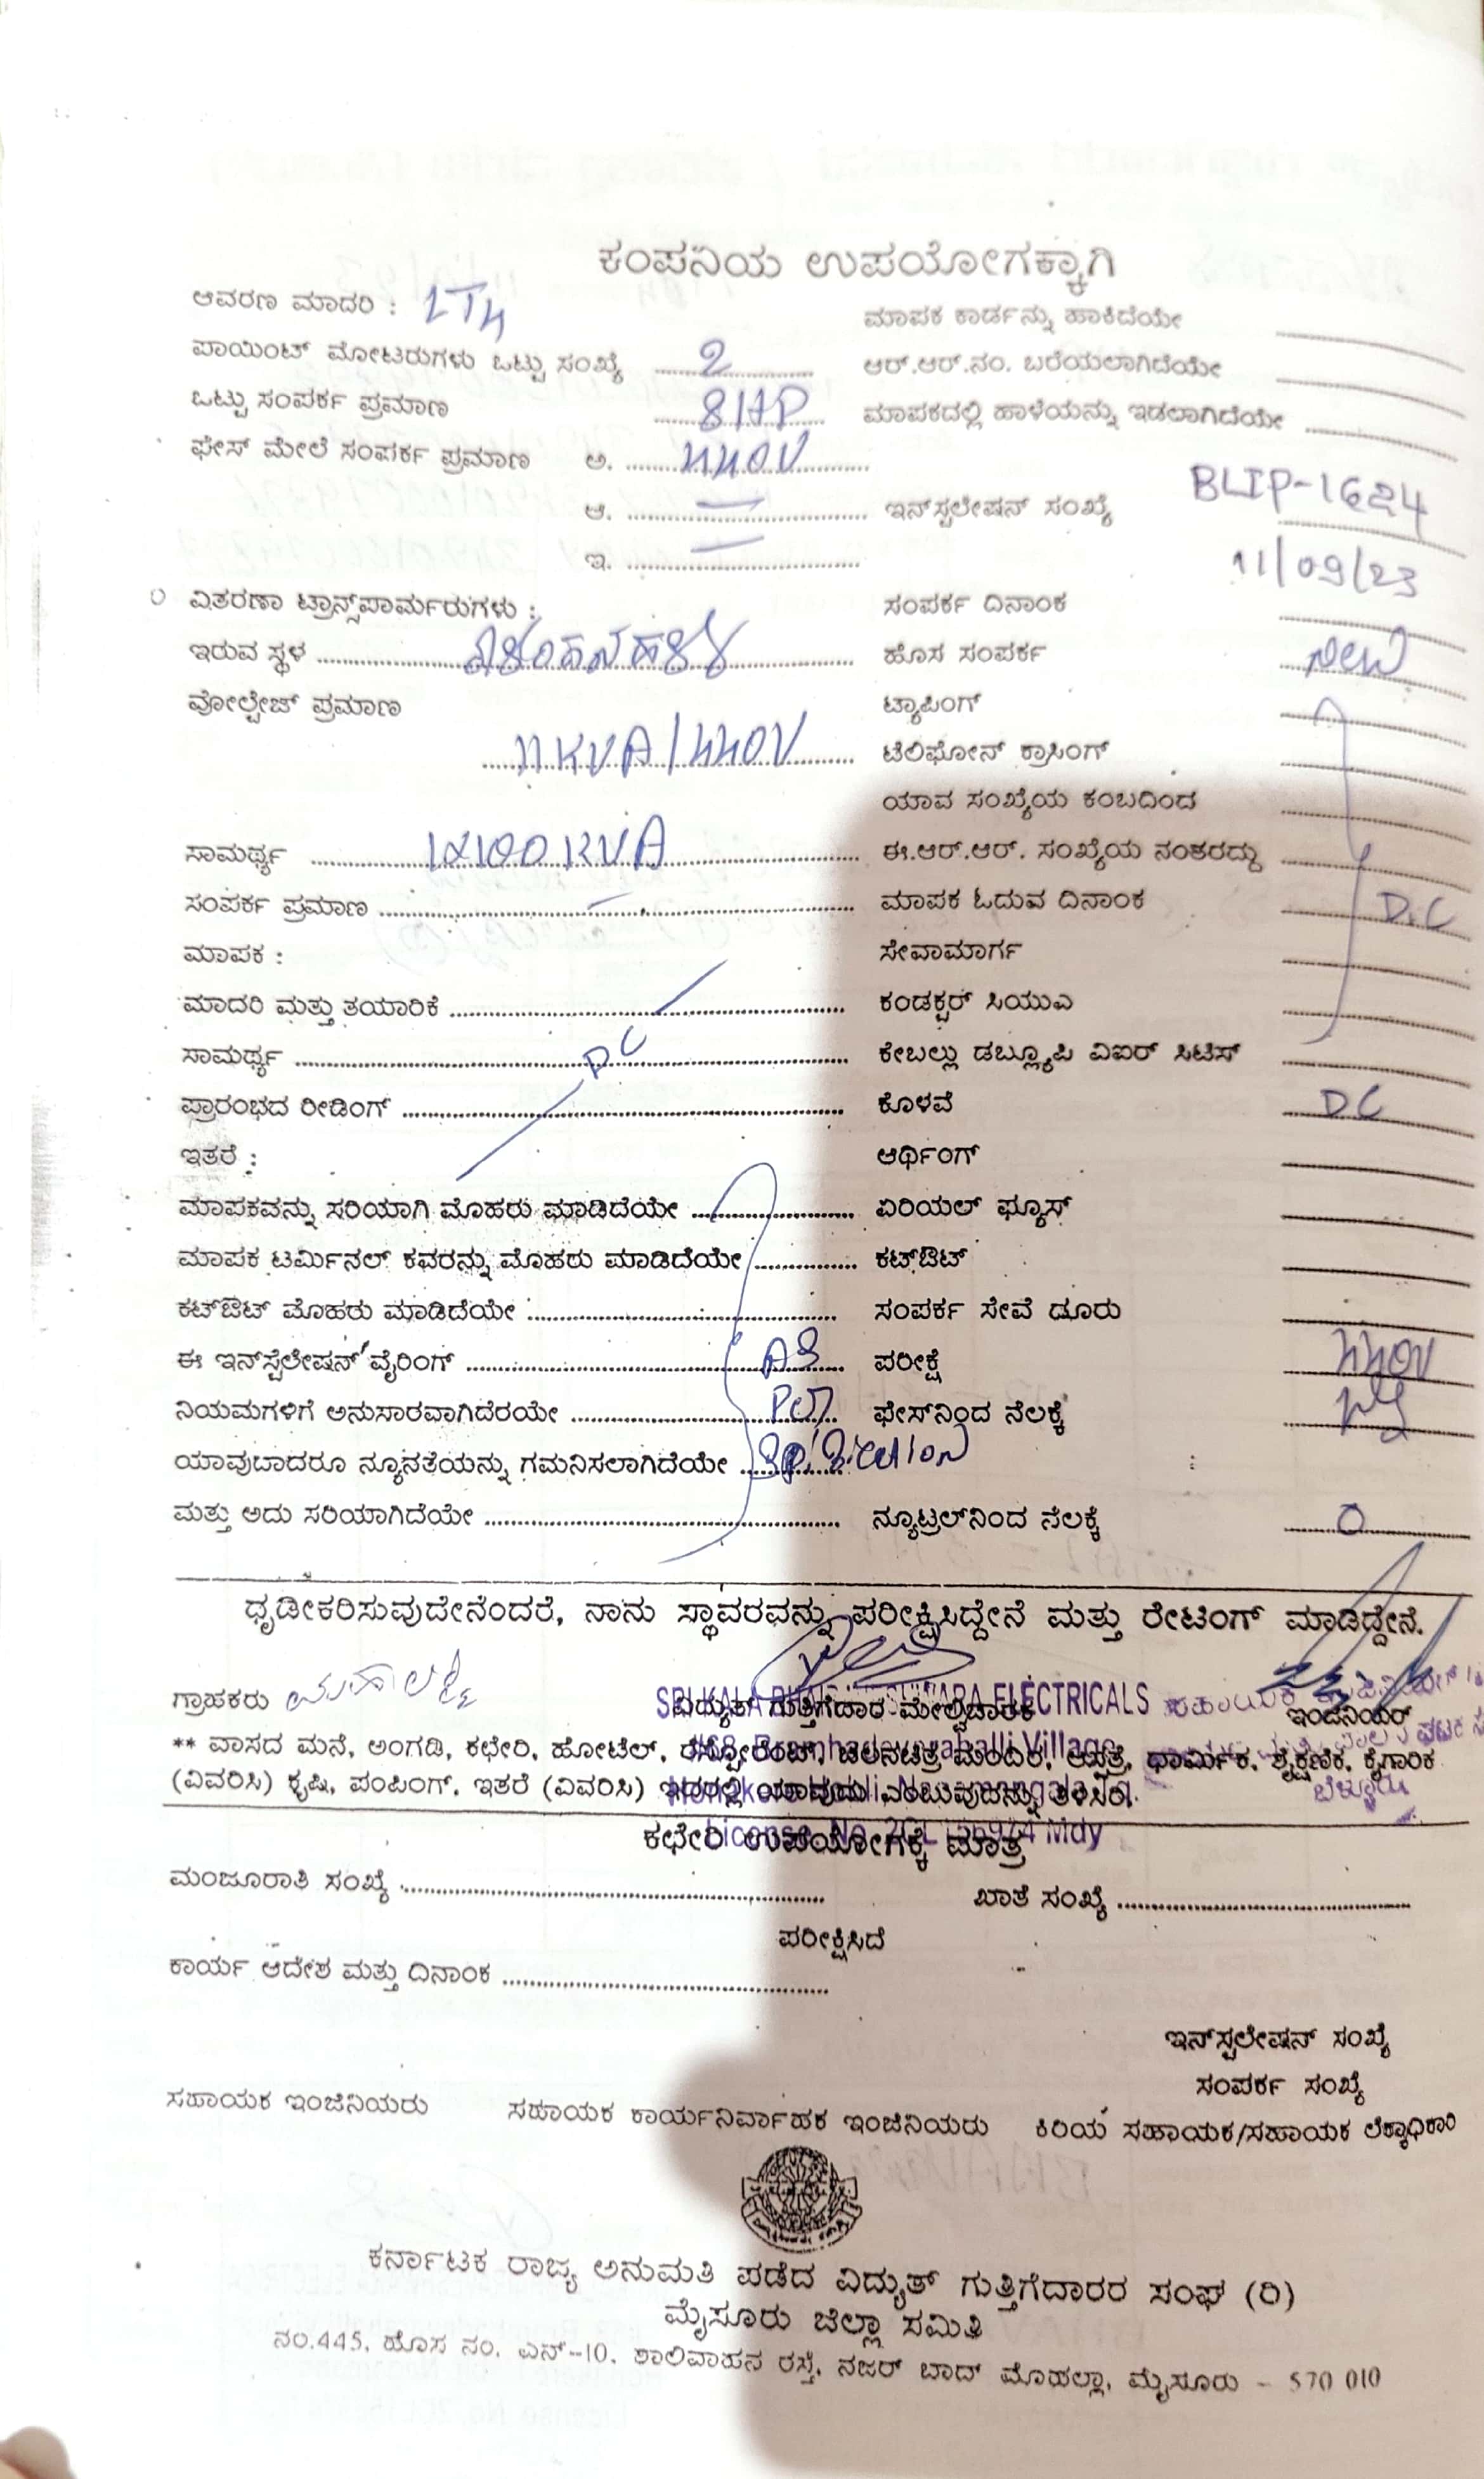 ಕಂಪನಿಯ ಉಪಯೋಗಕ್ಕಾಗಿ
ಆವರಣ ಮಾದರಿ : LT4
ಪಾಯಿಂಟ್ ಮೋಟರುಗಳು ಒಟ್ಟು ಸಂಖ್ಯೆ 2
ಒಟ್ಟು ಸಂಪರ್ಕ ಪ್ರಮಾಣ 8HP
ಫೇಸ್ ಮೇಲೆ ಸಂಪರ್ಕ ಪ್ರಮಾಣ ಅ. 440V
ಆ. —
ಇ. —
ವಿತರಣಾ ಟ್ರಾನ್ಸ್‌ಪಾರ್ಮರುಗಳು :
ಇರುವ ಸ್ಥಳ
ವೋಲ್ಟೇಜ್ ಪ್ರಮಾಣ
11KVA/440V
ಸಾಮರ್ಥ್ಯ 1X100KVA
ಸಂಪರ್ಕ ಪ್ರಮಾಣ —
ಮಾಪಕ :
ಮಾದರಿ ಮತ್ತು ತಯಾರಿಕೆ
ಸಾಮರ್ಥ್ಯ DC
ಪ್ರಾರಂಭದ ರೀಡಿಂಗ್
ಇತರೆ :
ಮಾಪಕವನ್ನು ಸರಿಯಾಗಿ ಮೊಹರು ಮಾಡಿದೆಯೇ
ಮಾಪಕ ಟರ್ಮಿನಲ್ ಕವರನ್ನು ಮೊಹರು ಮಾಡಿದೆಯೇ
ಕಟ್‌ಔಟ್ ಮೊಹರು ಮಾಡಿದೆಯೇ
ಈ ಇನ್‌ಸ್ಟೆಲೇಷನ್ ವೈರಿಂಗ್ AS
ನಿಯಮಗಳಿಗೆ ಅನುಸಾರವಾಗಿದೆರಯೇ
ಯಾವುಬಾದರೂ ನ್ಯೂನತೆಯನ್ನು ಗಮನಿಸಲಾಗಿದೆಯೇ
ಮತ್ತು ಅದು ಸರಿಯಾಗಿದೆಯೇ
ಮಾಪಕ ಕಾರ್ಡನ್ನು ಹಾಕಿದೆಯೇ
ಆರ್.ಆರ್.ನಂ. ಬರೆಯಲಾಗಿದೆಯೇ
ಮಾಪಕದಲ್ಲಿ ಹಾಳೆಯನ್ನು ಇಡಲಾಗಿದೆಯೇ
ಇನ್‌ಸ್ಟಲೇಷನ್ ಸಂಖ್ಯೆ BLIP-1624
11/09/23
ಸಂಪರ್ಕ ದಿನಾಂಕ
ಹೊಸ ಸಂಪರ್ಕ New
ಟ್ಯಾಪಿಂಗ್
ಟೆಲಿಫೋನ್ ಕ್ರಾಸಿಂಗ್
ಯಾವ ಸಂಖ್ಯೆಯ ಕಂಬದಿಂದ
ಈ.ಆರ್.ಆರ್. ಸಂಖ್ಯೆಯ ನಂತರದ್ದು
ಮಾಪಕ ಓದುವ ದಿನಾಂಕ D.C
ಸೇವಾಮಾರ್ಗ
ಕಂಡಕ್ಟರ್ ಸಿಯುಎ
ಕೇಬಲ್ಲು ಡಬ್ಲ್ಯೂಪಿ ವಿಐರ್ ಸಿಟಿಸ್
ಕೊಳವೆ DC
ಆರ್ಥಿಂಗ್
ಏರಿಯಲ್ ಫ್ಯೂಸ್
ಕಟ್‌ಔಟ್
ಸಂಪರ್ಕ ಸೇವೆ ಡೂರು
ಪರೀಕ್ಷೆ 440V
ಫೇಸ್‌ನಿಂದ ನೆಲಕ್ಕೆ
ನ್ಯೂಟ್ರಲ್‌ನಿಂದ ನೆಲಕ್ಕೆ 0
ಧೃಡೀಕರಿಸುವುದೇನೆಂದರೆ, ನಾನು ಸ್ಥಾವರವನ್ನು ಪರೀಕ್ಷಿಸಿದ್ದೇನೆ ಮತ್ತು ರೇಟಿಂಗ್ ಮಾಡಿದ್ದೇನೆ.
ಗ್ರಾಹಕರು ಮಹಾಲಕ್ಷ್ಮಿ
ವಿದ್ಯುತ್ ಗುತ್ತಿಗೆದಾರ ಮೇಲ್ವಿಚಾರಕ
ELECTRICALS
ಇಂಜಿನಿಯರ್
** ವಾಸದ ಮನೆ, ಅಂಗಡಿ, ಕಛೇರಿ, ಹೋಟೆಲ್, ರೆಸ್ಟೋರೆಂಟ್, ಚಲನಚಿತ್ರ ಮಂದಿರ, ಆಸ್ಪತ್ರೆ, ಧಾರ್ಮಿಕ, ಶೈಕ್ಷಣಿಕ, ಕೈಗಾರಿಕ
(ವಿವರಿಸಿ) ಕೃಷಿ, ಪಂಪಿಂಗ್, ಇತರೆ (ವಿವರಿಸಿ) ಇದರಲ್ಲಿ ಯಾವುದು ಎಂಬುವುದನ್ನು ತಿಳಿಸಿರಿ.
ಬೆಳ್ಳೂರು
ಕಛೇರಿ ಉಪಯೋಗಕ್ಕೆ ಮಾತ್ರ
ಮಂಜೂರಾತಿ ಸಂಖ್ಯೆ
ಖಾತೆ ಸಂಖ್ಯೆ
ಪರೀಕ್ಷಿಸಿದೆ
ಕಾರ್ಯ ಆದೇಶ ಮತ್ತು ದಿನಾಂಕ
ಇನ್‌ಸ್ಟಲೇಷನ್ ಸಂಖ್ಯೆ
ಸಂಪರ್ಕ ಸಂಖ್ಯೆ
ಸಹಾಯಕ ಇಂಜಿನಿಯರು ಸಹಾಯಕ ಕಾರ್ಯನಿರ್ವಾಹಕ ಇಂಜಿನಿಯರು ಕಿರಿಯ ಸಹಾಯಕ/ಸಹಾಯಕ ಲೆಕ್ಕಾಧಿಕಾರಿ
ಕರ್ನಾಟಕ ರಾಜ್ಯ ಅನುಮತಿ ಪಡೆದ ವಿದ್ಯುತ್ ಗುತ್ತಿಗೆದಾರರ ಸಂಘ (ರಿ)
ಮೈಸೂರು ಜಿಲ್ಲಾ ಸಮಿತಿ
ನಂ.445, ಹೊಸ ನಂ. ಎನ್-10, ಶಾಲಿವಾಹನ ರಸ್ತೆ, ನಜರ್ ಬಾದ್ ಮೊಹಲ್ಲಾ, ಮೈಸೂರು - 570 010